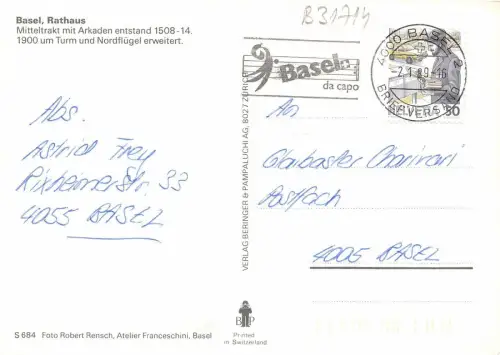 Basel, Rathaus
Mitteltrakt mit Arkaden entstand 1508-14.
1900 um Turm und Nordflügel erweitert.
B31714
Basel
da capo
4000 BASEL 2
BRIEFVERSAND
HELVETIA 50
Abs.
Astrid Frey
Rixheimerstr. 33
4055 BASEL
VERLAG BERINGER & PAMPALUCHI AG, 8027 ZÜRICH
An
Glaibasler Charivari
Postfach
4005 BASEL
B P
Printed
in Switzerland
S 684 Foto Robert Rensch, Atelier Franceschini, Basel